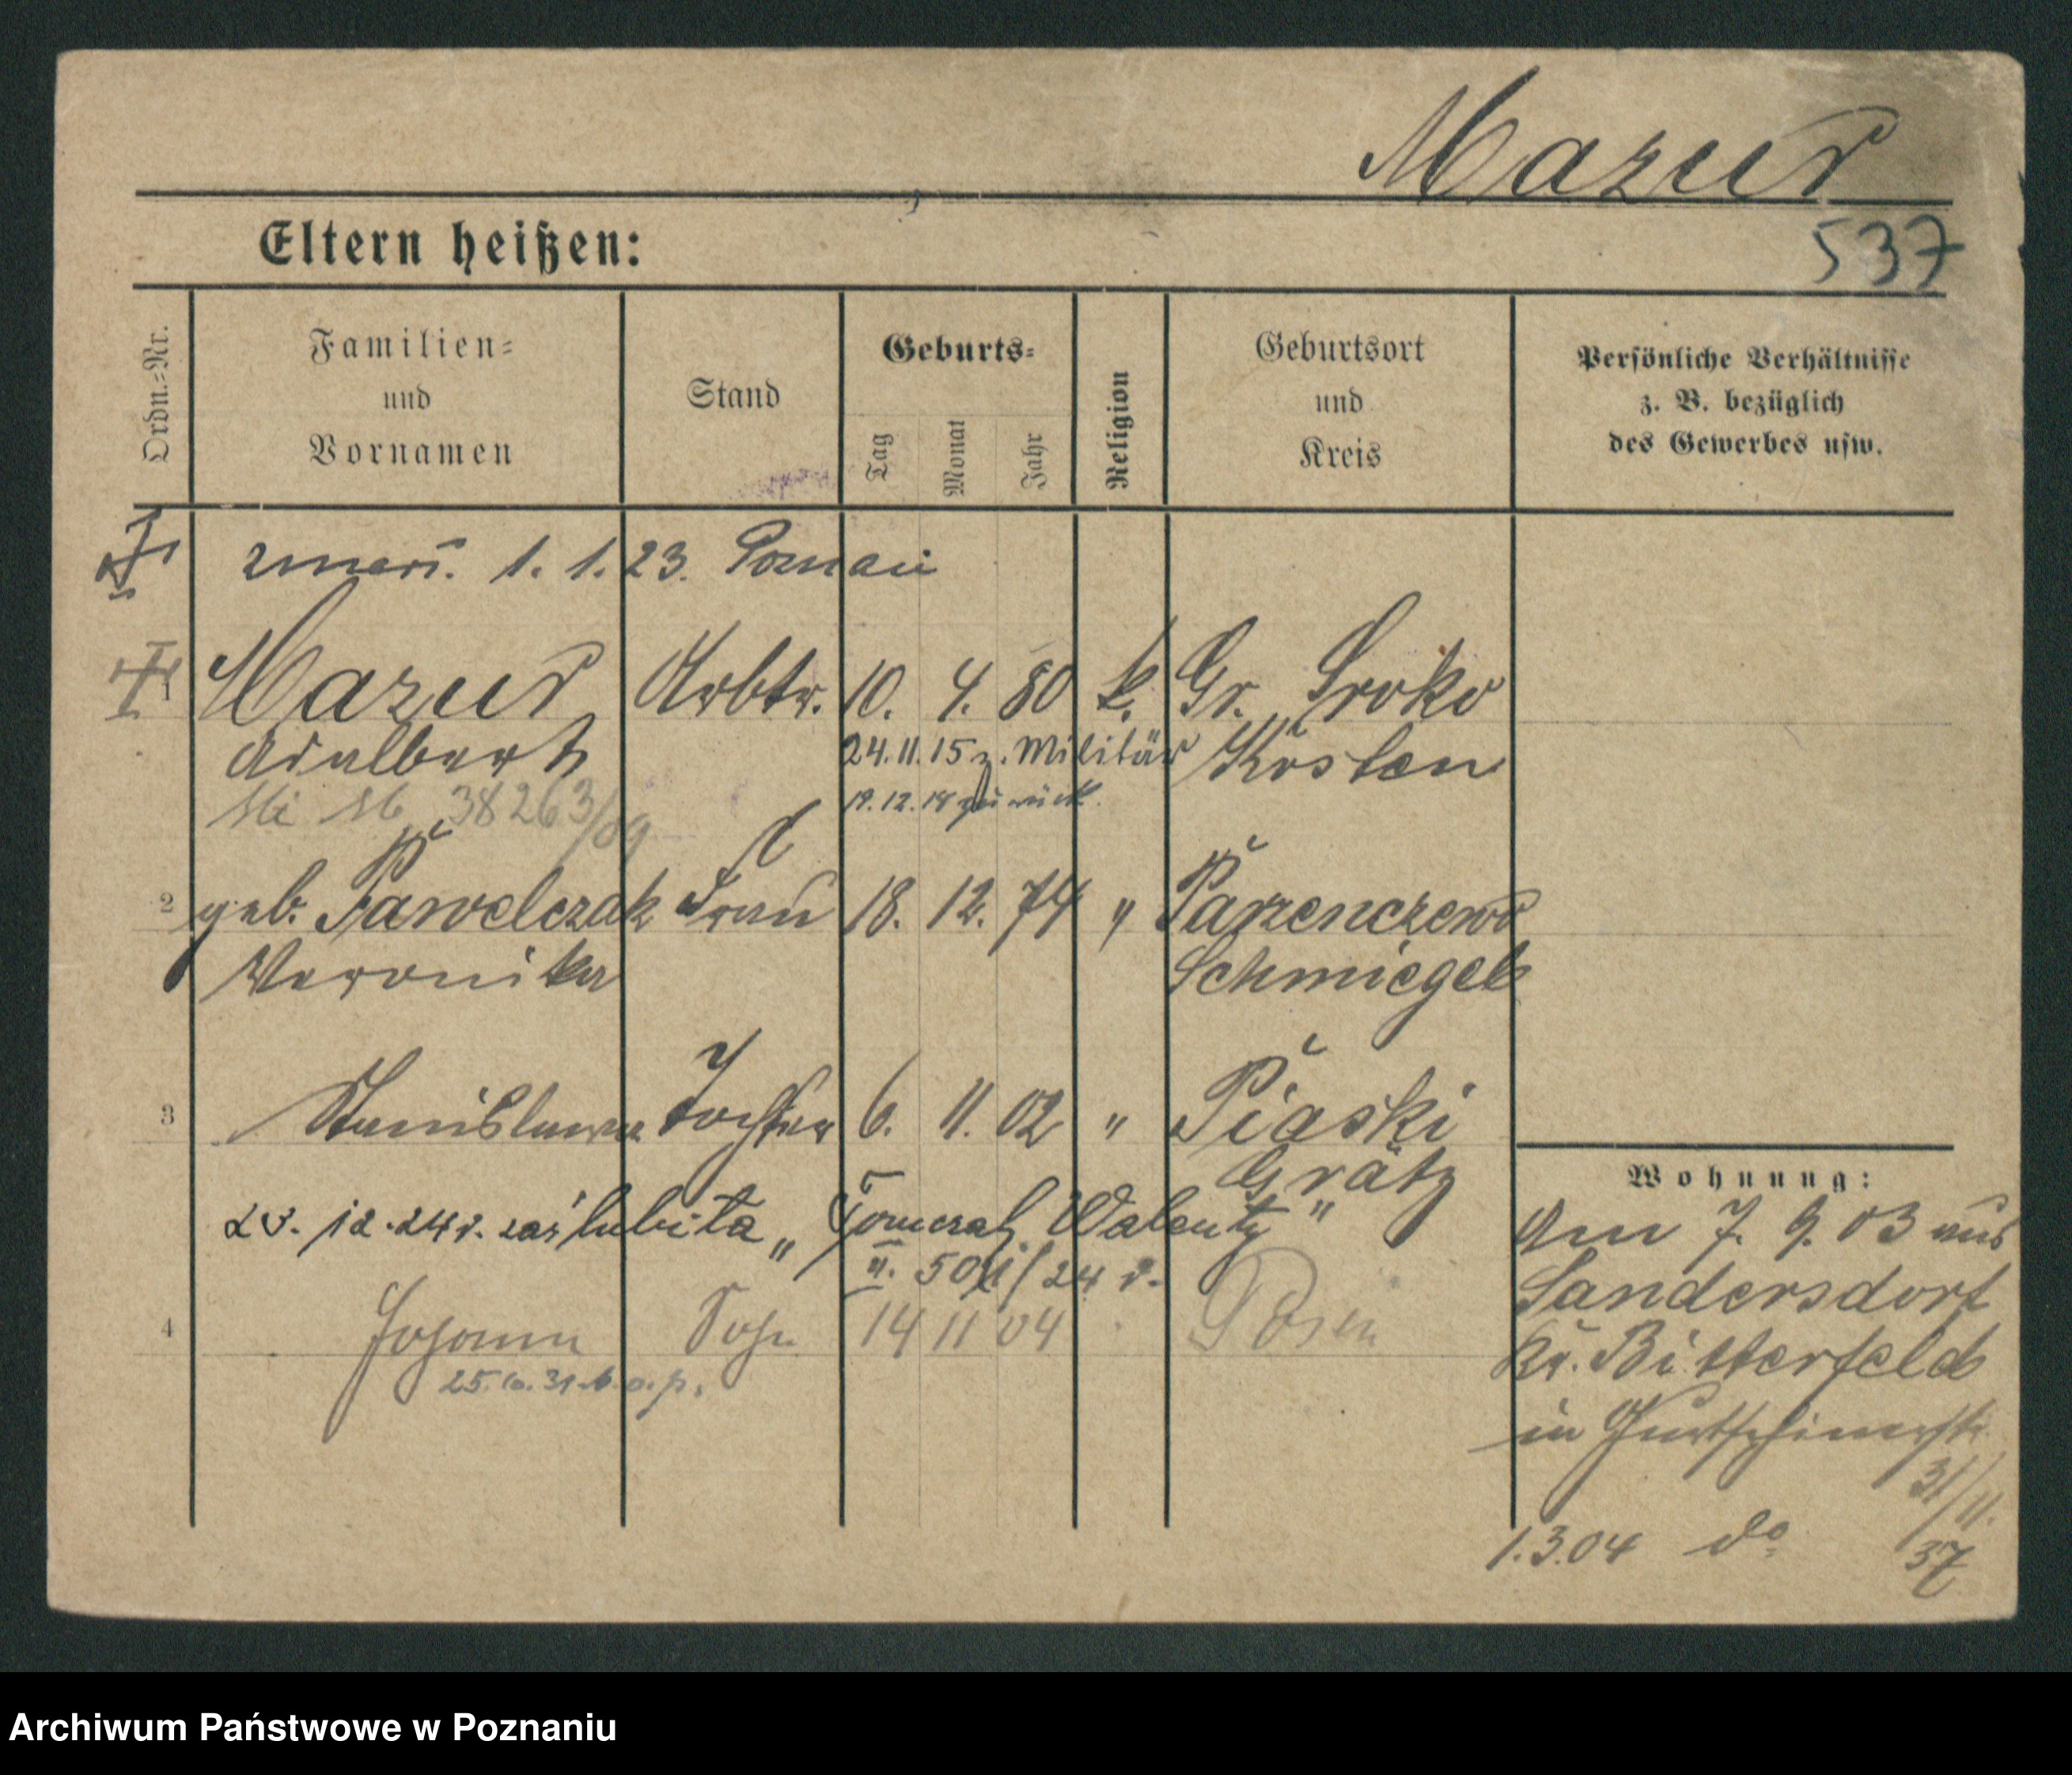 Mazur
Eltern heißen:
537
Ordn.=Nr.
Familien=
und
Vornamen
Stand
Geburts=
Tag
Monat
Jahr
Religion
Geburtsort
und
Kreis
Persönliche Verhältnisse
z. B. bezüglich
des Gewerbes usw.
zmarł. 1. 1. 23. Poznań
1 Mazur Arbtr. 10. 4. 80 k. Gr. Sroko
Adalbert 24.11.15 z. Militär Kosten
38263/09 19.12.18 zurück.
2 geb. Pawelczak Frau 18. 12. 74 " Parzenczewo
Veronika Schmiegel
3 Stanislawa Tochter 6. 11. 02 " Piaski
Grätz
12.24 r. zaślubiła " Walenty "
II. 501/24 r.
4 Johann Sohn 14 11 04 Posen
25.10.31
Wohnung:
Am 7. 9. 03 aus
Sandersdorf
Kr. Bitterfeld
in
31/11.
1.3.04 do 37
Archiwum Państwowe w Poznaniu